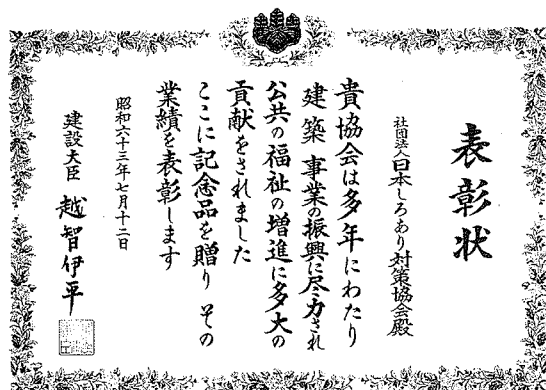 表彰状
社団法人日本しろあり対策協会殿
貴協会は多年にわたり
建築事業の振興に尽力され
公共の福祉の増進に多大の
貢献をされました
ここに記念品を贈り その
業績を表彰します
昭和六十三年七月十二日
建設大臣 越智伊平